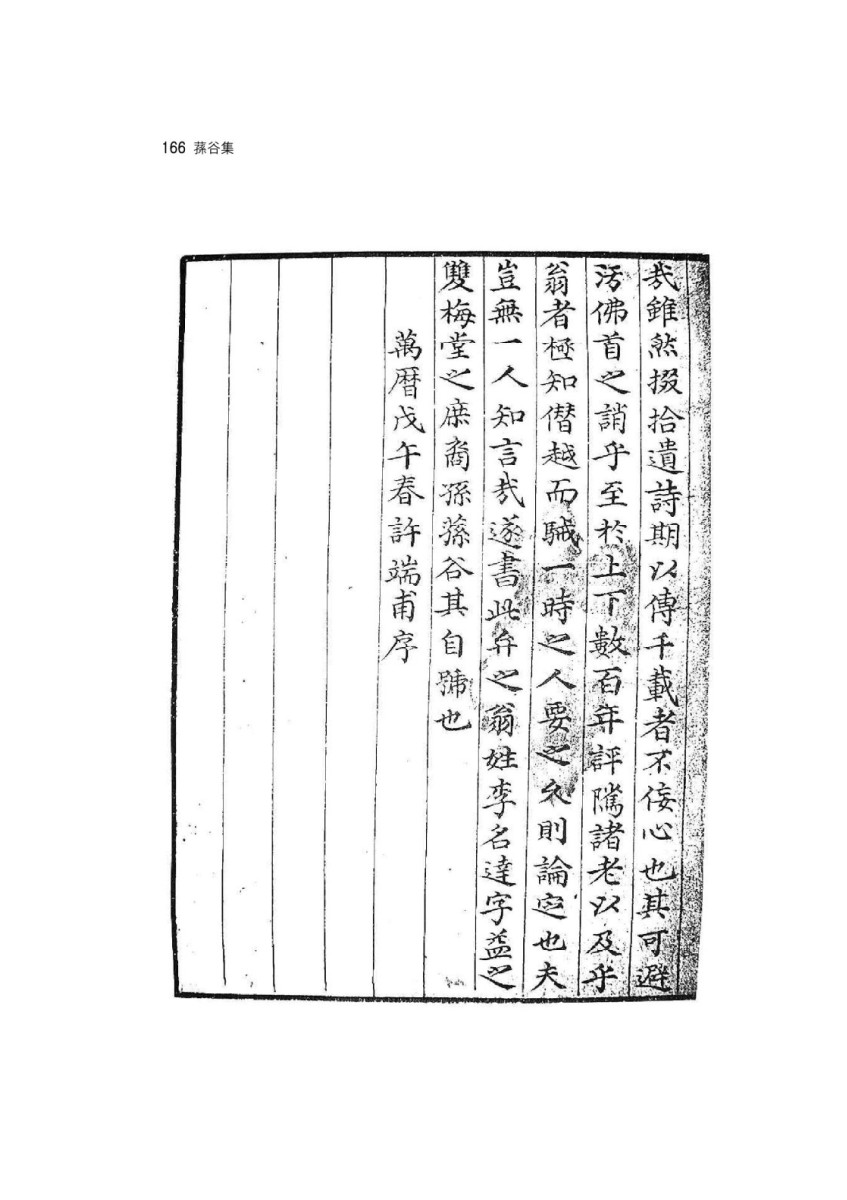 166 蓀谷集
哉雖然掇拾遺詩期以傳千載者不侫心也其可避
汚佛首之誚乎至於上下數百年評隲諸老以及乎
翁者極知僣越而駴一時之人要之久則論定也夫
豈無一人知言哉遂書此弁之翁姓李名達字益之
雙梅堂之庶裔孫蓀谷其自號也
萬曆戊午春許端甫序